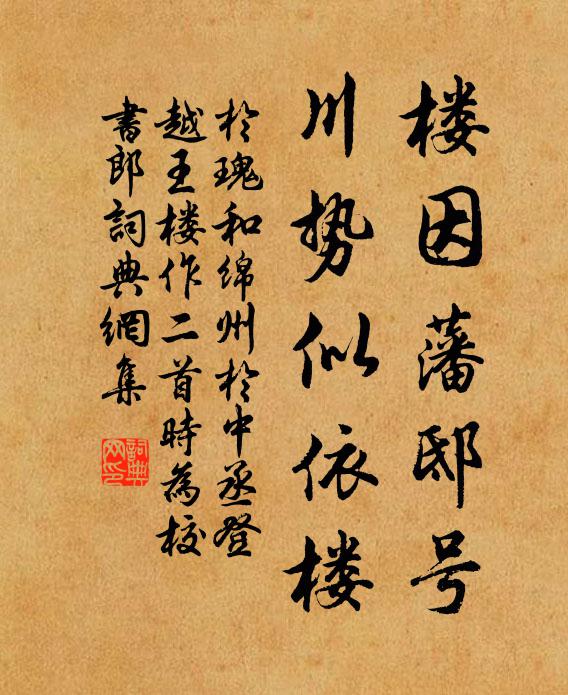 楼因藩邸号
川势似依楼
於瑰和绵州於中丞登
越王楼作二首時為校
書郎詞典網集
詞典网印